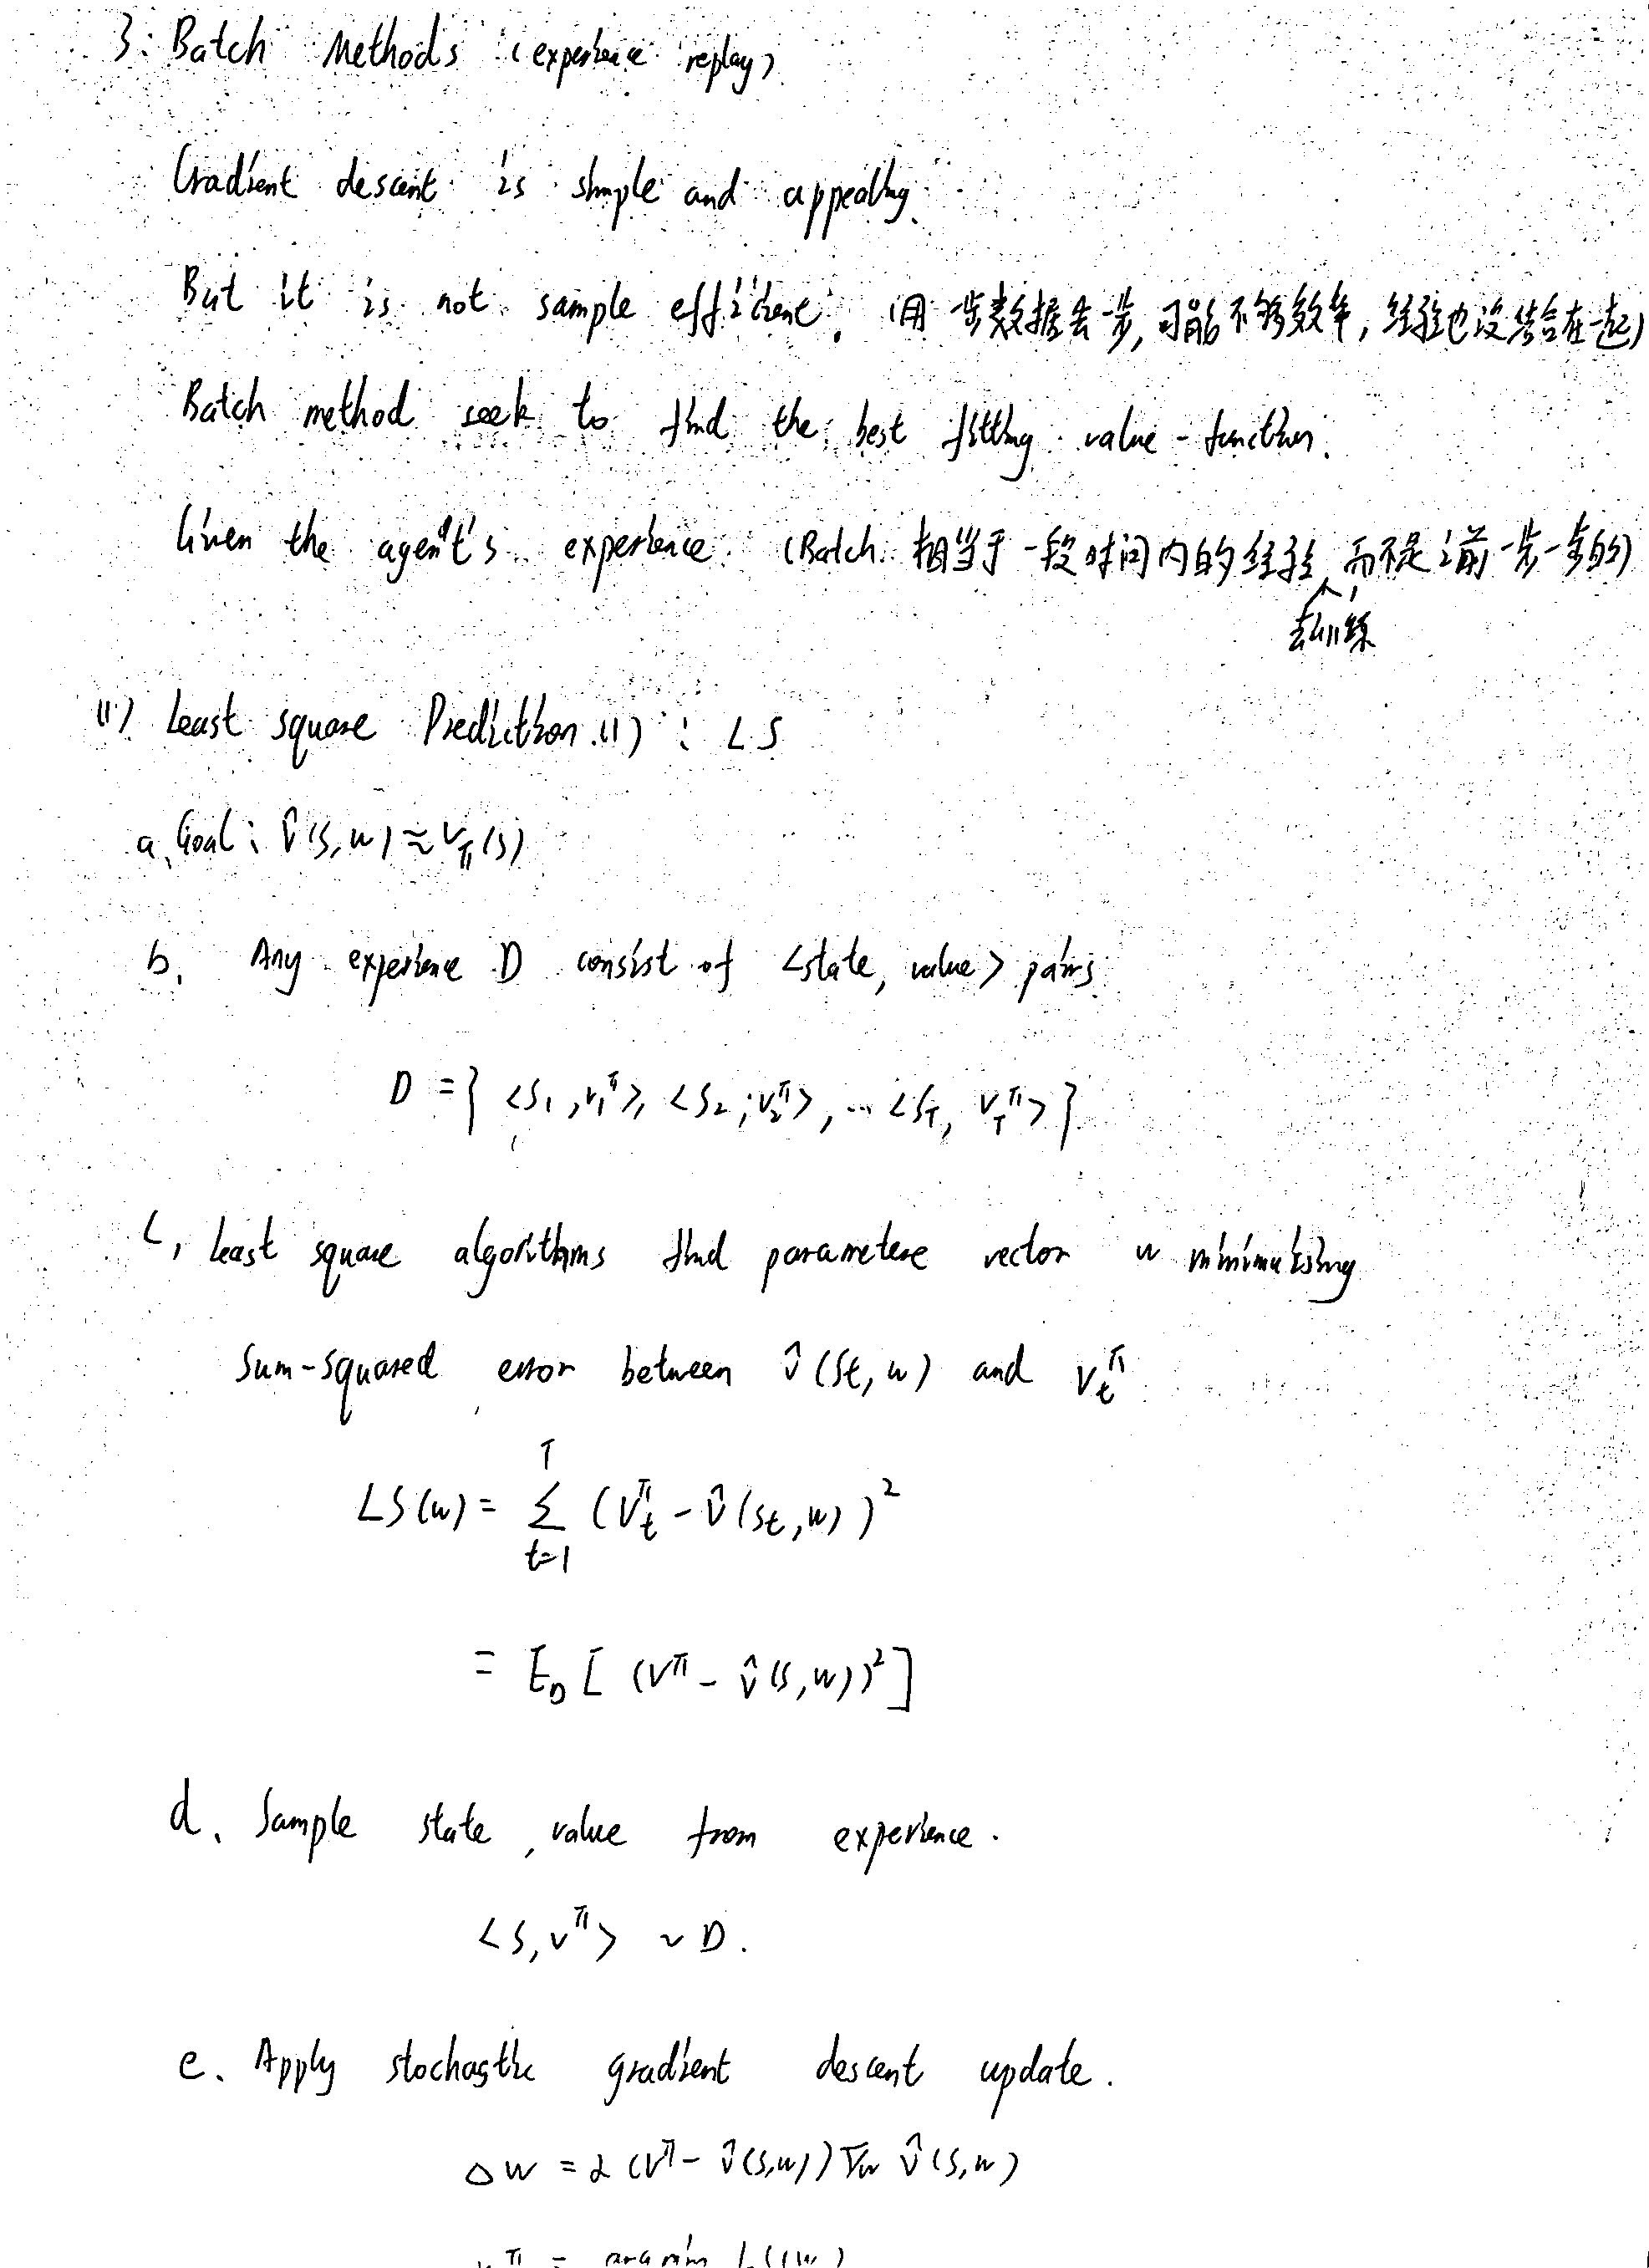 3. Batch Methods (experience replay)
Gradient descent is simple and appealing.
But it is not sample efficient. (用一步数据去一步, 可能不够效率, 经验也没结合在一起)
Batch method seek to find the best fitting value-function.
Given the agent's experience. (Batch 相当于一段时间内的经验, 而不是之前一步一步的)
去训练
(1) Least square Prediction (1) : LS
a. Goal: v̂(s,w) ≈ vπ(s)
b. Any experience D consist of <state, value> pairs.
D = { <S₁, v₁^π>, <S₂, v₂^π>, ... <S_T, v_T^π> }
c, Least square algorithms find parametere vector w minimulising
Sum-squared error between v̂(St, w) and v_t^π
LS(w) = Σ_{t=1}^{T} (V_t^π - v̂(St, w))²
= E_D [ (V^π - v̂(s, w))² ]
d. Sample state, value from experience.
<S, v^π> ~ D.
e. Apply stochastic gradient descent update.
△w = α (v^π - v̂(s,w)) ∇w v̂(s,w)